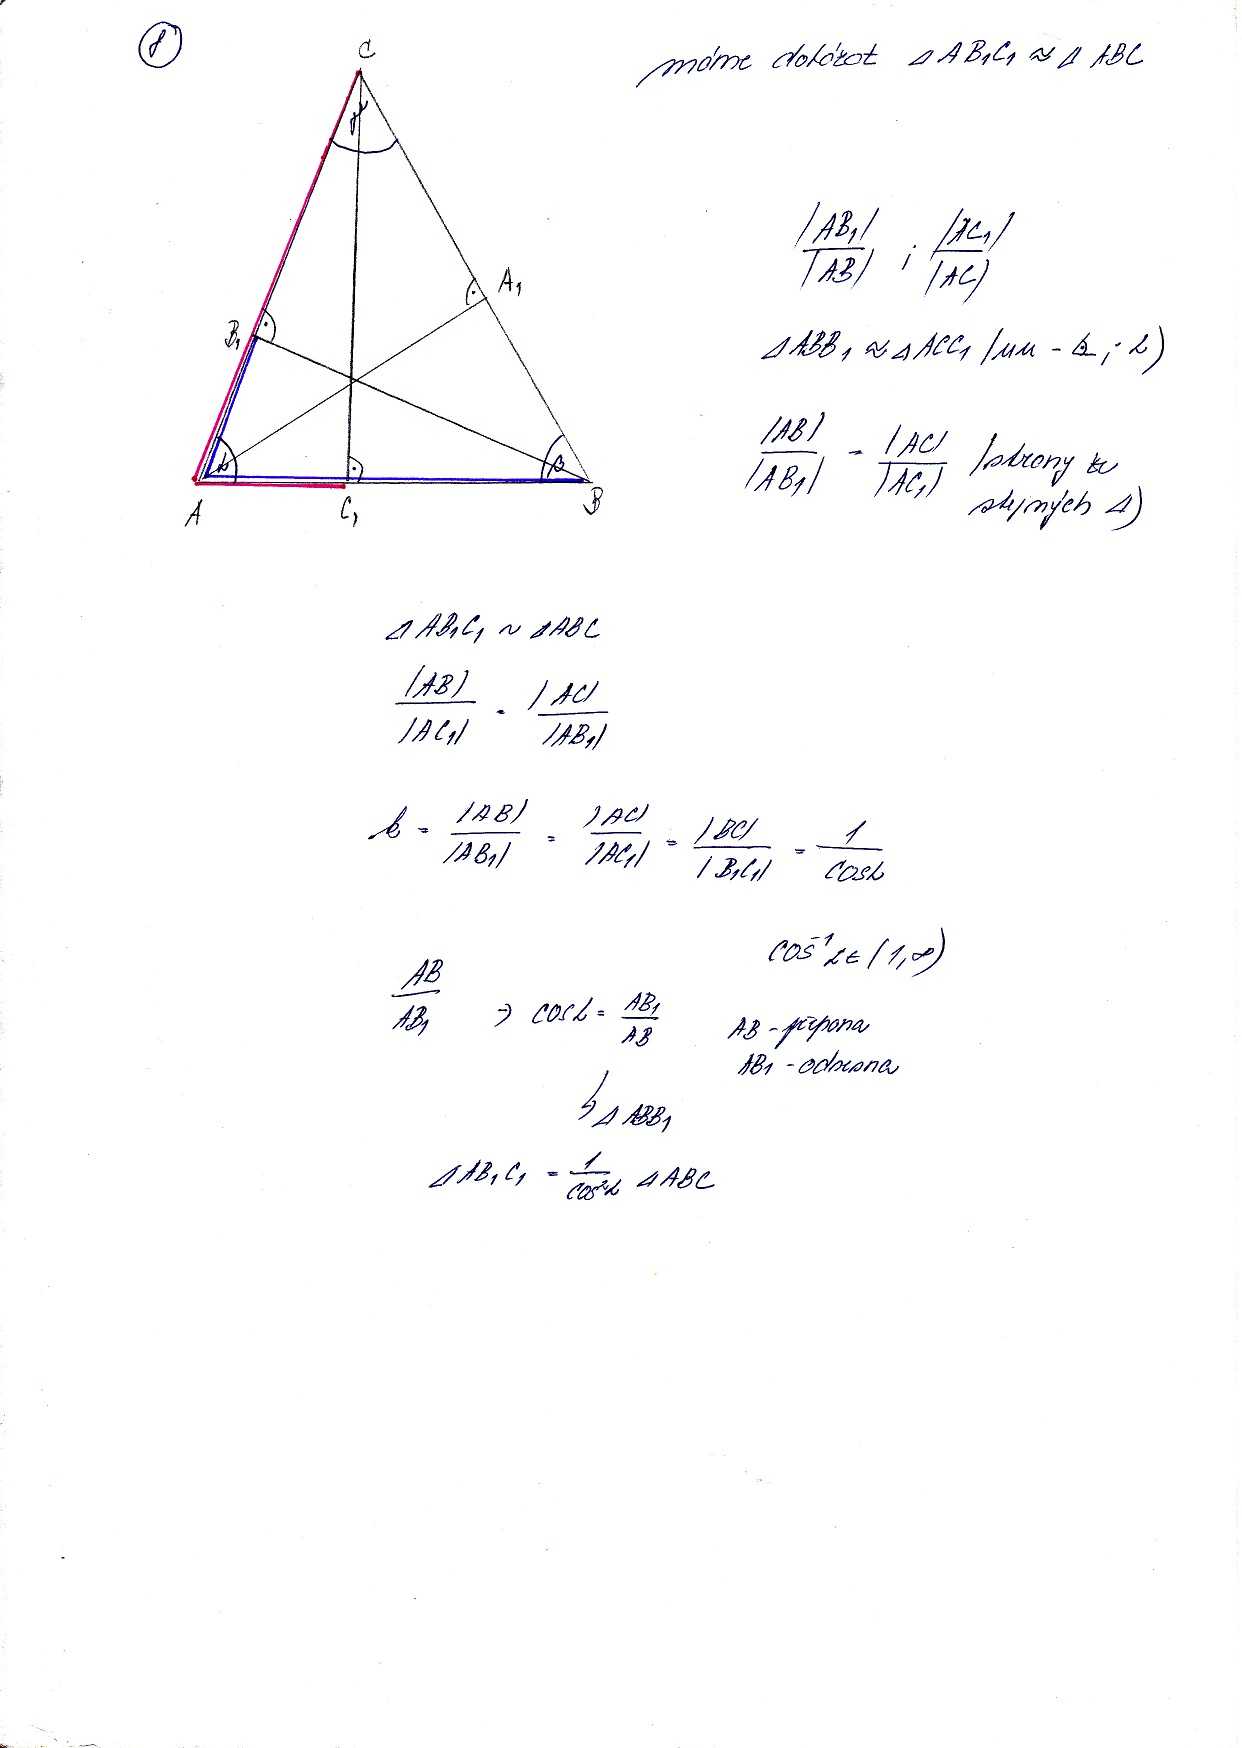 8
C
máme dokázat Δ AB₁C₁ ≈ Δ ABC
γ
|AB₁| / |AB| ; |AC₁| / |AC|
A₁
B₁
ΔABB₁ ≈ ΔACC₁ /uu - ; α)
|AB| / |AB₁| = |AC| / |AC₁| /strony ve
stejných Δ)
α
β
A
C₁
B
Δ AB₁C₁ ~ ΔABC
|AB| / |AC₁| = |AC| / |AB₁|
k = |AB| / |AB₁| = |AC| / |AC₁| = |BC| / |B₁C₁| = 1 / cosα
cos⁻¹ α ∈ (1, ∞)
AB / AB₁ => cosα = AB₁ / AB
AB - přepona
AB₁ - odvěsna
↳ Δ ABB₁
Δ AB₁C₁ = 1 / cos²α Δ ABC